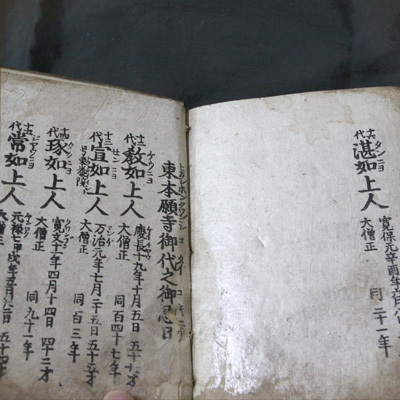 十六代
湛如上人
タンニヨ
寛保元辛酉年六月八
大僧正 同二十一年
東本願寺御代之御忌日
十二代
教如上人
ケウニヨ
慶長十九年十月五日 五十七
大僧正 同百四十七年
十三代
宣如上人
センニヨ
万治元年七月二十五日 五十六才
大僧正 同百三年
十四代
琢如上人
タクニヨ
寛文十一年四月十四日 四十二才
大僧正 同九十一年
十五代
常如上人
ジヤウニヨ
元禄七甲戌年五月廿二日 五十四才
大僧正